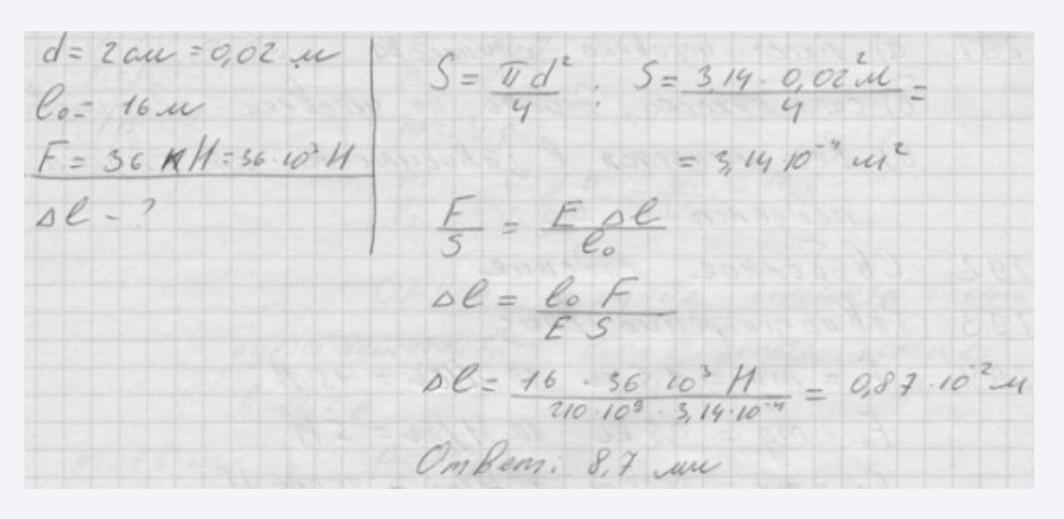 d = 2 см = 0,02 м
l₀ = 16 м
F = 36 кН = 36·10³ Н
Δl - ?
S = πd²/4 ; S = 3,14 · 0,02² м/4 =
= 3,14·10⁻⁴ м²
F/S = E Δl/l₀
Δl = l₀ F/E S
Δl = 16 · 36·10³ Н/210·10⁹ · 3,14·10⁻⁴ = 0,87·10⁻² м
Ответ: 8,7 мм